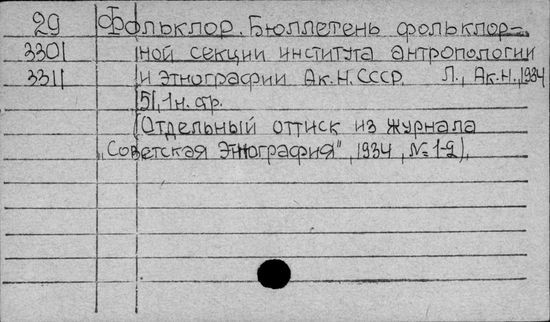 29 Фольклор. Бюллетень фольклор-
3301 ной секции института антропологии
3311 и этнографии Ак.Н.СССР. Л., Ак.Н.,1934
51,1н.стр.
(Отдельный оттиск из журнала
„Советская Этнография", 1934, № 1-2).